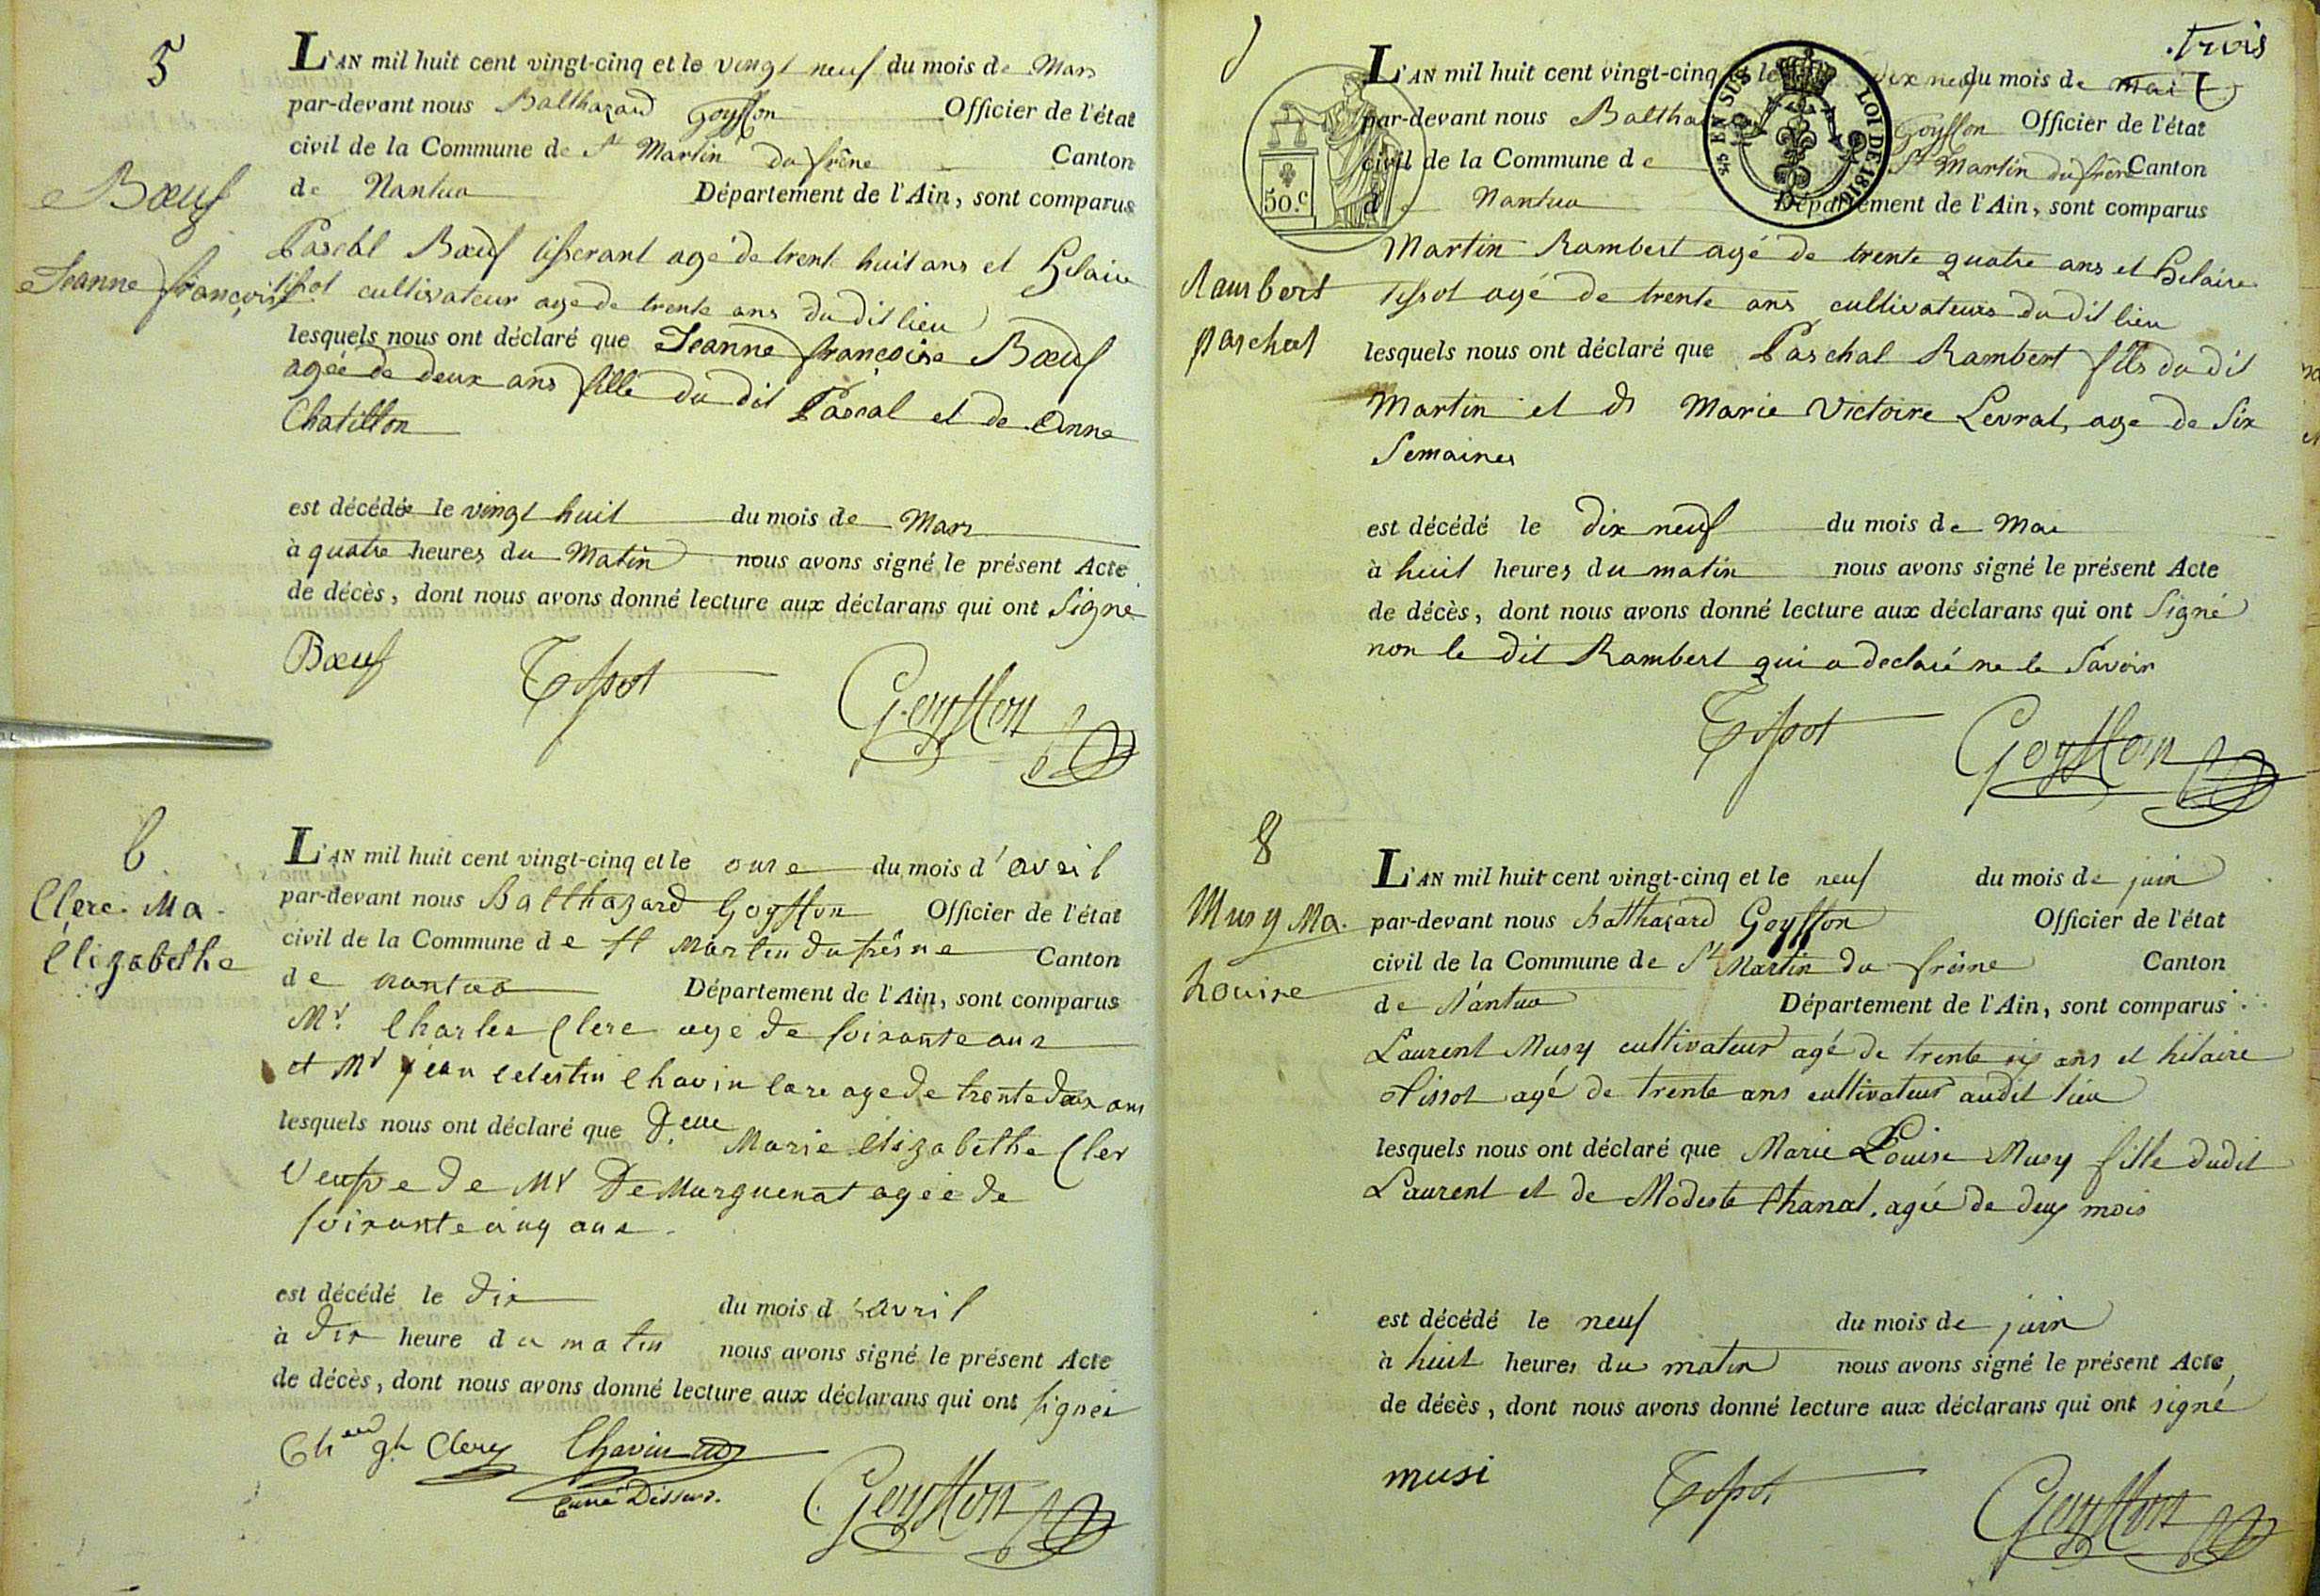 5
L'AN mil huit cent vingt-cinq et le vingt neuf du mois de Mars
par-devant nous Balthazard Goyffon Officier de l'état
civil de la Commune de St Martin du frêne Canton
de Nantua Département de l'Ain, sont comparus
Bœuf
Jeanne françoise
Paschl Bœuf tisserant agé de trente huit ans et Hilaire
tissot cultivateur agé de trente ans du dit lieu
lesquels nous ont déclaré que Jeanne françoise Bœuf
agée de deux ans fille du dit Pascal et de Anne
Chatillon
est décédée le vingt huit du mois de Mars
à quatre heures du Matin nous avons signé le présent Acte
de décès, dont nous avons donné lecture aux déclarans qui ont Signé
Bœuf Tissot Goyffon
6
Clerc Ma
Elizabethe
L'AN mil huit cent vingt-cinq et le onze du mois d'avril
par-devant nous Balthazard Goyffon Officier de l'état
civil de la Commune de St Martin du frêsne Canton
de nantua Département de l'Ain, sont comparus
Mr. Charles Clerc agé de soixante ans
et Mr jean celestin Chavin agé de trente deux ans
lesquels nous ont déclaré que Delle Marie Elizabethe Cler
Veufve de Mr De Murguenat agée de
soixante cinq ans.
est décédé le dix du mois d'avril
à dix heure du matin nous avons signé le présent Acte
de décès, dont nous avons donné lecture aux déclarans qui ont signés
Clerc Chavin Goyffon
Curé Desserv.
.trois
7
50.c
EN SUS LOI DE 1816
L'AN mil huit cent vingt-cinq et le dix neuf du mois de mai
par-devant nous Baltha Goyffon Officier de l'état
civil de la Commune de St Martin du frêne Canton
de Nantua Département de l'Ain, sont comparus
Rambert
paschal
Martin Rambert agé de trente quatre ans et Hilaire
Tissot agé de trente ans cultivateurs du dit lieu
lesquels nous ont déclaré que Paschal Rambert fils du dit
Martin et de Marie Victoire Levrat, age de Six
Semaines
est décédé le dix neuf du mois de Mai
à huit heures du matin nous avons signé le présent Acte
de décès, dont nous avons donné lecture aux déclarans qui ont Signé
non le dit Rambert qui a declaré ne le Savoir
Tissot Goyffon
8
Musy Ma.
Louise
L'AN mil huit cent vingt-cinq et le neuf du mois de juin
par-devant nous balthazard Goyffon Officier de l'état
civil de la Commune de St Martin du frêsne Canton
de Nantua Département de l'Ain, sont comparus
Laurent Musy cultivateur agé de trente six ans et hilaire
tissot agé de trente ans cultivateur audit lieu
lesquels nous ont déclaré que Marie Louise Musy fille dudit
Laurent et de Modeste Chanal, agée de deux mois
est décédé le neuf du mois de juin
à huit heures du matin nous avons signé le présent Acte,
de décès, dont nous avons donné lecture aux déclarans qui ont signé
musi Tissot Goyffon